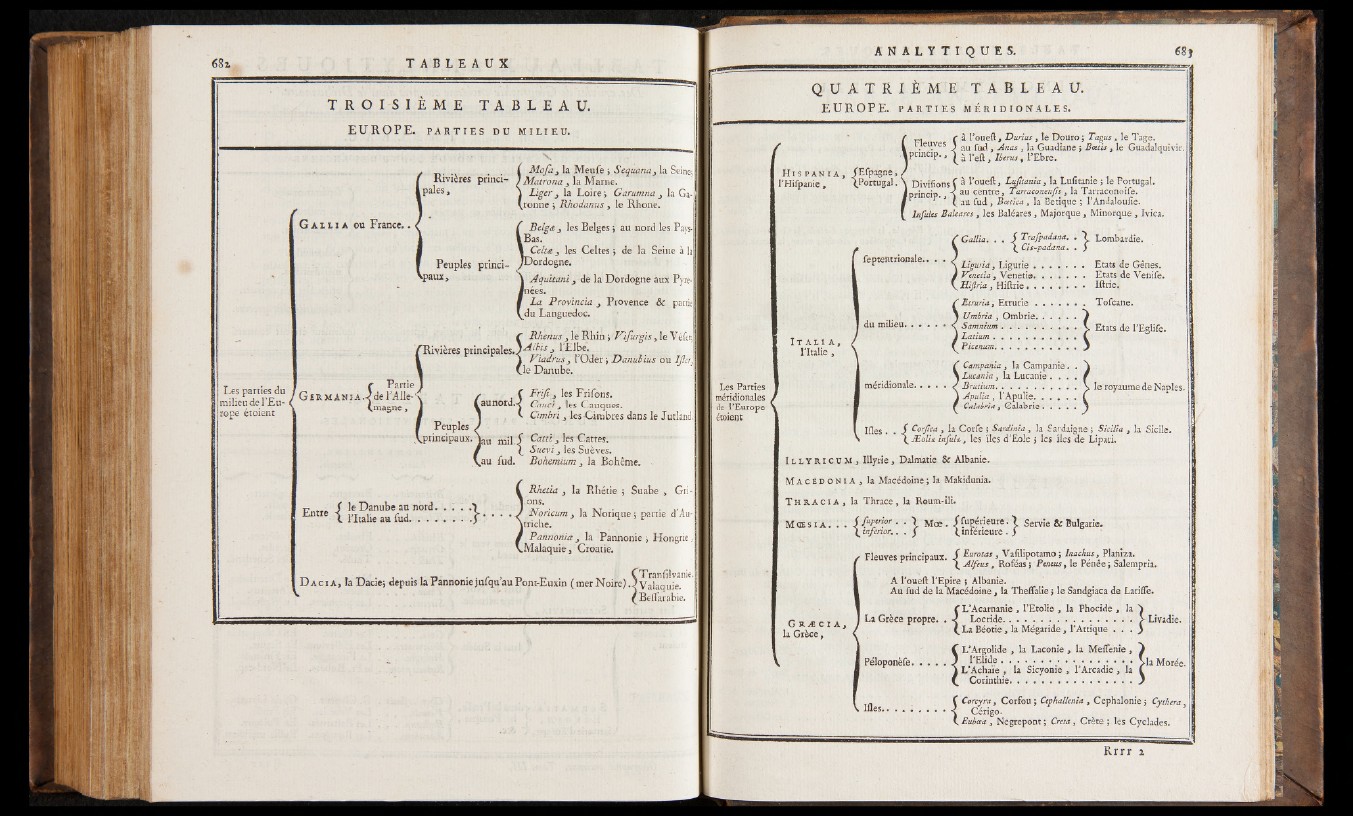 682 TABLEAUX
TROISIÈME TABLEAU.
EUROPE. PARTIES DU MILIEU.
Les parties du
milieu de l'Eu-
rope étoient
GALLIA ou France. .
Rivières princi-
pales,
Mosa, la Meuse ; Sequana, la Seine,
Matrona, la Marne.
Liger, la Loire ; Garumna, la Ga-
ronne ; Rhodanus, le Rhone.
Peuples princi-
paux,
Belgæ, les Belges ; au nord les Pays-
Bas.
Celtæ, les Celtes ; de la Seine à la
Dordogne.
Aquitani, de la Dordogne aux Pyre-
nées.
La Provincia, Provence & partie
du Languedoc.
GERMANIA.
Partie
de l'Alle-
magne,
Rivières principales.
Rhenus, le Rhin ; Visurgis, le Véser,
Albis, l'Elbe.
Viadrus, l'Oder ; Danubius ou Ister,
le Danube.
Peuples
principaux.
au nord.
Frisi, les Frisons.
Cauci, les Cauques.
Cimbri, les Cimbres dans le Jutland.
au mil.
Catti, les Cattes.
Suevi, les Suèves.
au sud. Bohemium, la Bohême.
Entre
le Danube au nord. . . . .
l'Italie au sud. . . . . . . .
Rhetia, la Rhétie ; Suabe, Gri-
ons.
Noricum, la Norique ; partie d'Au-
triche.
Pannonia, la Pannonie, Hongrie,
Malaquie, Croatie.
DACIA, la Dacie; depuis la Pannonie jusqu'au Pont-Euxin (mer Noire).
Transilvanie.
Valaquie.
Bessarabie.
ANALYTIQUES. 683
QUATRIÈME TABLEAU.
EUROPE. PARTIES MÉRIDIONALES.
Les Parties
méridionales
de l'Europe
étoient
HISPANIA,
l'Hispanie,
Espagne,
Portugal.
Fleuves
princip.,
à l'ouest, Durius, le Douro ; Tagus, le Tage.
au sud, Anas, la Guadiane ; Bœtis, le Guadalquivir.
à l'est, Iberus, l'Ebre.
Divisions
princip.,
à l'ouest, Lusitania, la Lusitanie ; le Portugal.
au centre, Tarraconensis, la Tarraconoise.
au sud, Bœtica, la Betique ; l'Andalousie.
Insules Baleares, les Baléares, Majorque, Minorque, Ivica.
ITALIA,
l'Italie,
septentrionale. . . .
Gallia. . . Traspadana. . Lombardie.
Cis-padana. .
Liguria, Ligurie . . . . . . . Etats de Gênes.
Venetia, Venetie. . . . . . . Etats de Venise.
Histria, Histrie . . . . . . . . Istrie.
du milieu. . . . . . .
Etruria, Etrurie . . . . . . . Toscane.
Umbria, Ombrie. . . . . .
Samnium . . . . . . . . . . Etats de l'Eglise.
Latium . . . . . . . . . . .
Picenum. . . . . . . . . . .
méridionale. . . . .
Campania, la Campanie. .
Lucania, la Lucanie . . . .
Brutium. . . . . . . . . . . le royaume de Naples.
Apulia, l'Apulie. . . . . .
Calabria, Calabrie . . . . .
Isles . .
Corsica, la Corse ; Sardinia, la Sardaigne ; Sicilia, la Sicile.
Æoliæ insulæ, les îles d'Eole ; les îles de Lipari.
ILLYRICUM, Illyrie, Dalmatie & Albanie.
MACEDONIA, la Macédoine ; la Makidunia.
THRACIA, la Thrace, la Roum-ili.
MŒSIA. . . superior . . Mœ. supérieure . Servie & Bulgarie.
inferior. . . inférieure .
GRÆCIA,
la Grèce,
Fleuves principaux.
Eurotas, Vasilipotamo ; Inachus, Planiza.
Alfeus, Roféas ; Peneus, le Pénée ; Salempria.
A l'ouest l'Epire ; Albanie.
Au sud de la Macédoine, la Thessalie ; le Sandgiaca de Larisse.
La Grèce propre. . .
L'Acarnanie, l'Etolie, la Phocide, la
Locride. . . . . . . . . . . . . . . . . . Livadie.
La Béotie, la Mégaride, l'Attique . . .
Péloponèse. . . . .
L'Argolide, la Laconie, la Messenie,
l'Elide . . . . . . . . . . . . . . . . . la Morée.
L'Achaïe, la Sicyonie, l'Arcadie, la
Corinthie. . . . . . . . . . . . . . . .
Isles. . . . . . . . .
Corcyra, Corfou ; Cephallenia, Cephalonie ; Cythera,
Cérigo.
Eubœa, Negrepont ; Creta, Crète ; les Cyclades.
Rrrr 2